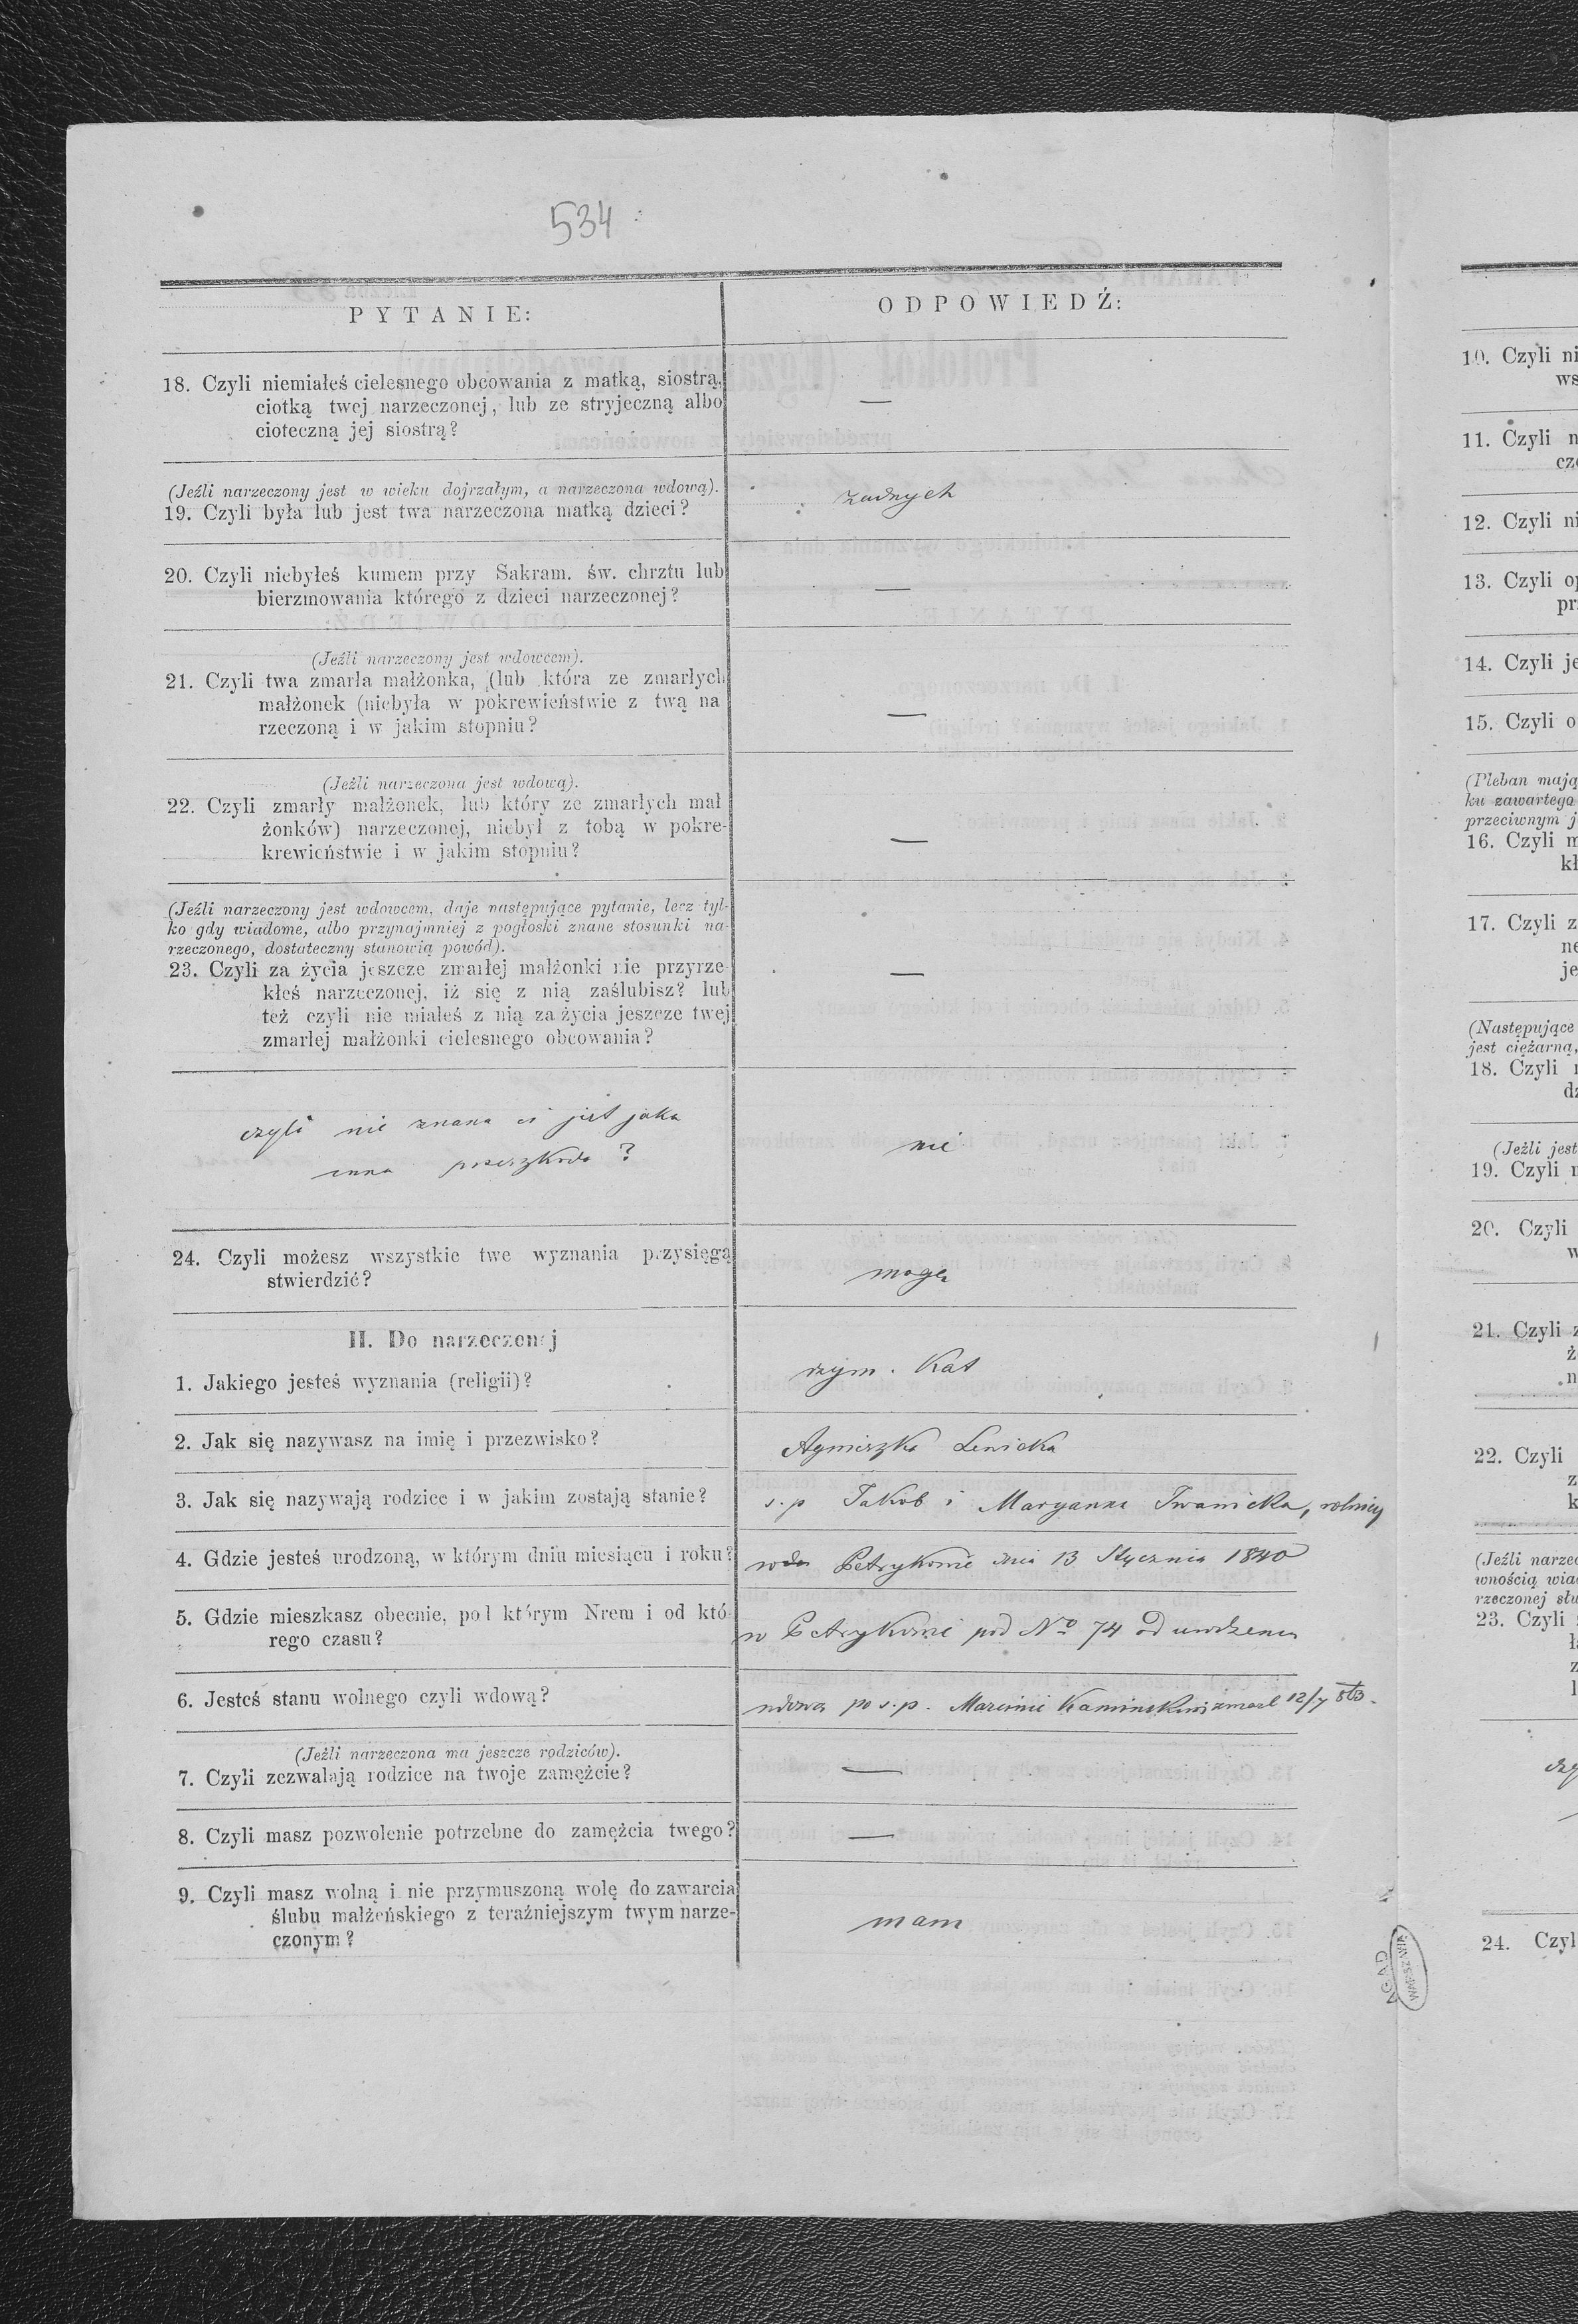 534
PYTANIE:
ODPOWIEDŹ:
18. Czyli niemiałeś cielesnego obcowania z matką, siostrą,
ciotką twej narzeczonej, lub ze stryjeczną albo
cioteczną jej siostrą?
—
(Jeźli narzeczony jest w wieku dojrzałym, a narzeczona wdową).
19. Czyli była lub jest twa narzeczona matką dzieci?
żadnych
20. Czyli niebyłeś kumem przy Sakram. św. chrztu lub
bierzmowania którego z dzieci narzeczonej?
—
(Jeźli narzeczony jest wdowcem).
21. Czyli twa zmarła małżonka, (lub która ze zmarłych
małżonek (niebyła w pokrewieństwie z twą na
rzeczoną i w jakim stopniu?
—
(Jeźli narzeczona jest wdową).
22. Czyli zmarły małżonek, lub który ze zmarłych mał
żonków) narzeczonej, niebył z tobą w pokre-
krewieństwie i w jakim stopniu?
—
(Jeźli narzeczony jest wdowcem, daje następujące pytanie, lecz tyl-
ko gdy wiadome, albo przynajmniej z pogłoski znane stosunki na-
rzeczonego, dostateczny stanowią powód).
23. Czyli za życia jeszcze zmarłej małżonki nie przyrze-
kłeś narzeczonej, iż się z nią zaślubisz? lub
też czyli nie miałeś z nią za życia jeszcze twej
zmarłej małżonki cielesnego obcowania?
—
czyli nie znana ci jest jaka
inna przeszkoda?
nie
24. Czyli możesz wszystkie twe wyznania przysięgą
stwierdzić?
mogę
II. Do narzeczonej
1. Jakiego jesteś wyznania (religii)?
rzym. Kat
2. Jak się nazywasz na imię i przezwisko?
Agnieszka Lewicka
3. Jak się nazywają rodzice i w jakim zostają stanie?
s.p Jakób i Maryanna Iwanicka, rolnicy
4. Gdzie jesteś urodzoną, w którym dniu miesiącu i roku?
Petrykowie dnia 13 Stycznia 1840
5. Gdzie mieszkasz obecnie, pod którym Nrem i od któ-
rego czasu?
w Petrykowie pod No 74 od urodzenia
6. Jesteś stanu wolnego czyli wdową?
wdowa po s.p. Marcinie Kaminskim zmarł 12/7
(Jeźli narzeczona ma jeszcze rodziców).
7. Czyli zezwalają rodzice na twoje zamęźcie?
—
8. Czyli masz pozwolenie potrzebne do zamężcia twego?
—
9. Czyli masz wolną i nie przymuszoną wolę do zawarcia
ślubu małżeńskiego z teraźniejszym twym narze-
czonym?
mam
AGAD
WARSZAWA
10. Czyli ni
ws
11. Czyli n
cze
12. Czyli ni
13. Czyli op
pr
14. Czyli je
15. Czyli o
(Pleban mają
ku zawartego
przeciwnym j
16. Czyli m
kł
17. Czyli z
ne
je
(Następujące
jest ciężarną,
18. Czyli
dz
(Jeźli jest
19. Czyli n
20. Czyli
w
21. Czyli z
ż
n
22. Czyli
z
k
(Jeźli narzec
wnością wia
rzeczonej słu
23. Czyli
ł
z
l
24. Czyl